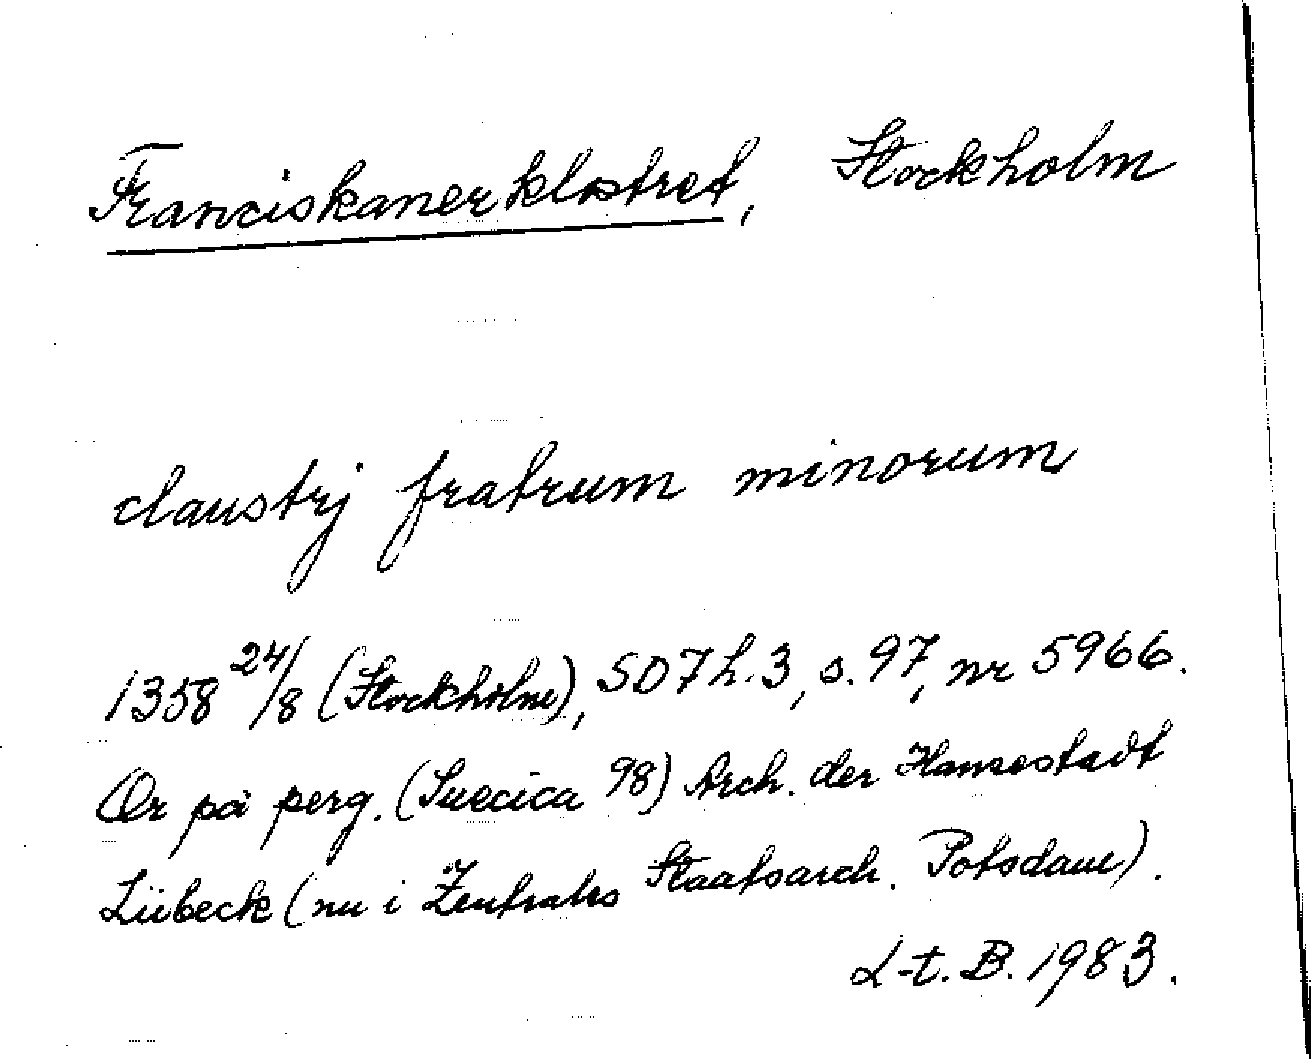 Franciskanerklostret, Stockholm
claustrj fratrum minorum
1358 24/8 (Stockholm), SD7 h.3, s.97, nr 5966.
Or på perg. (Suecica 98) Arch. der Hansestadt
Lübeck (nu i Zentrales Staatsarch. Potsdam).
L-t. B. 1983.